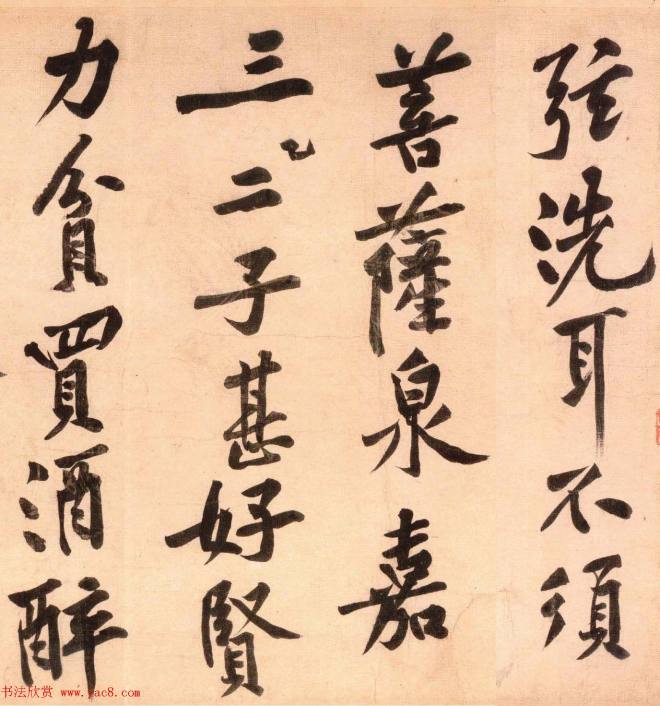 弦洗耳不須
菩薩泉嘉
三二子甚好賢
力貧買酒醉
书法欣赏 www.yac8.com